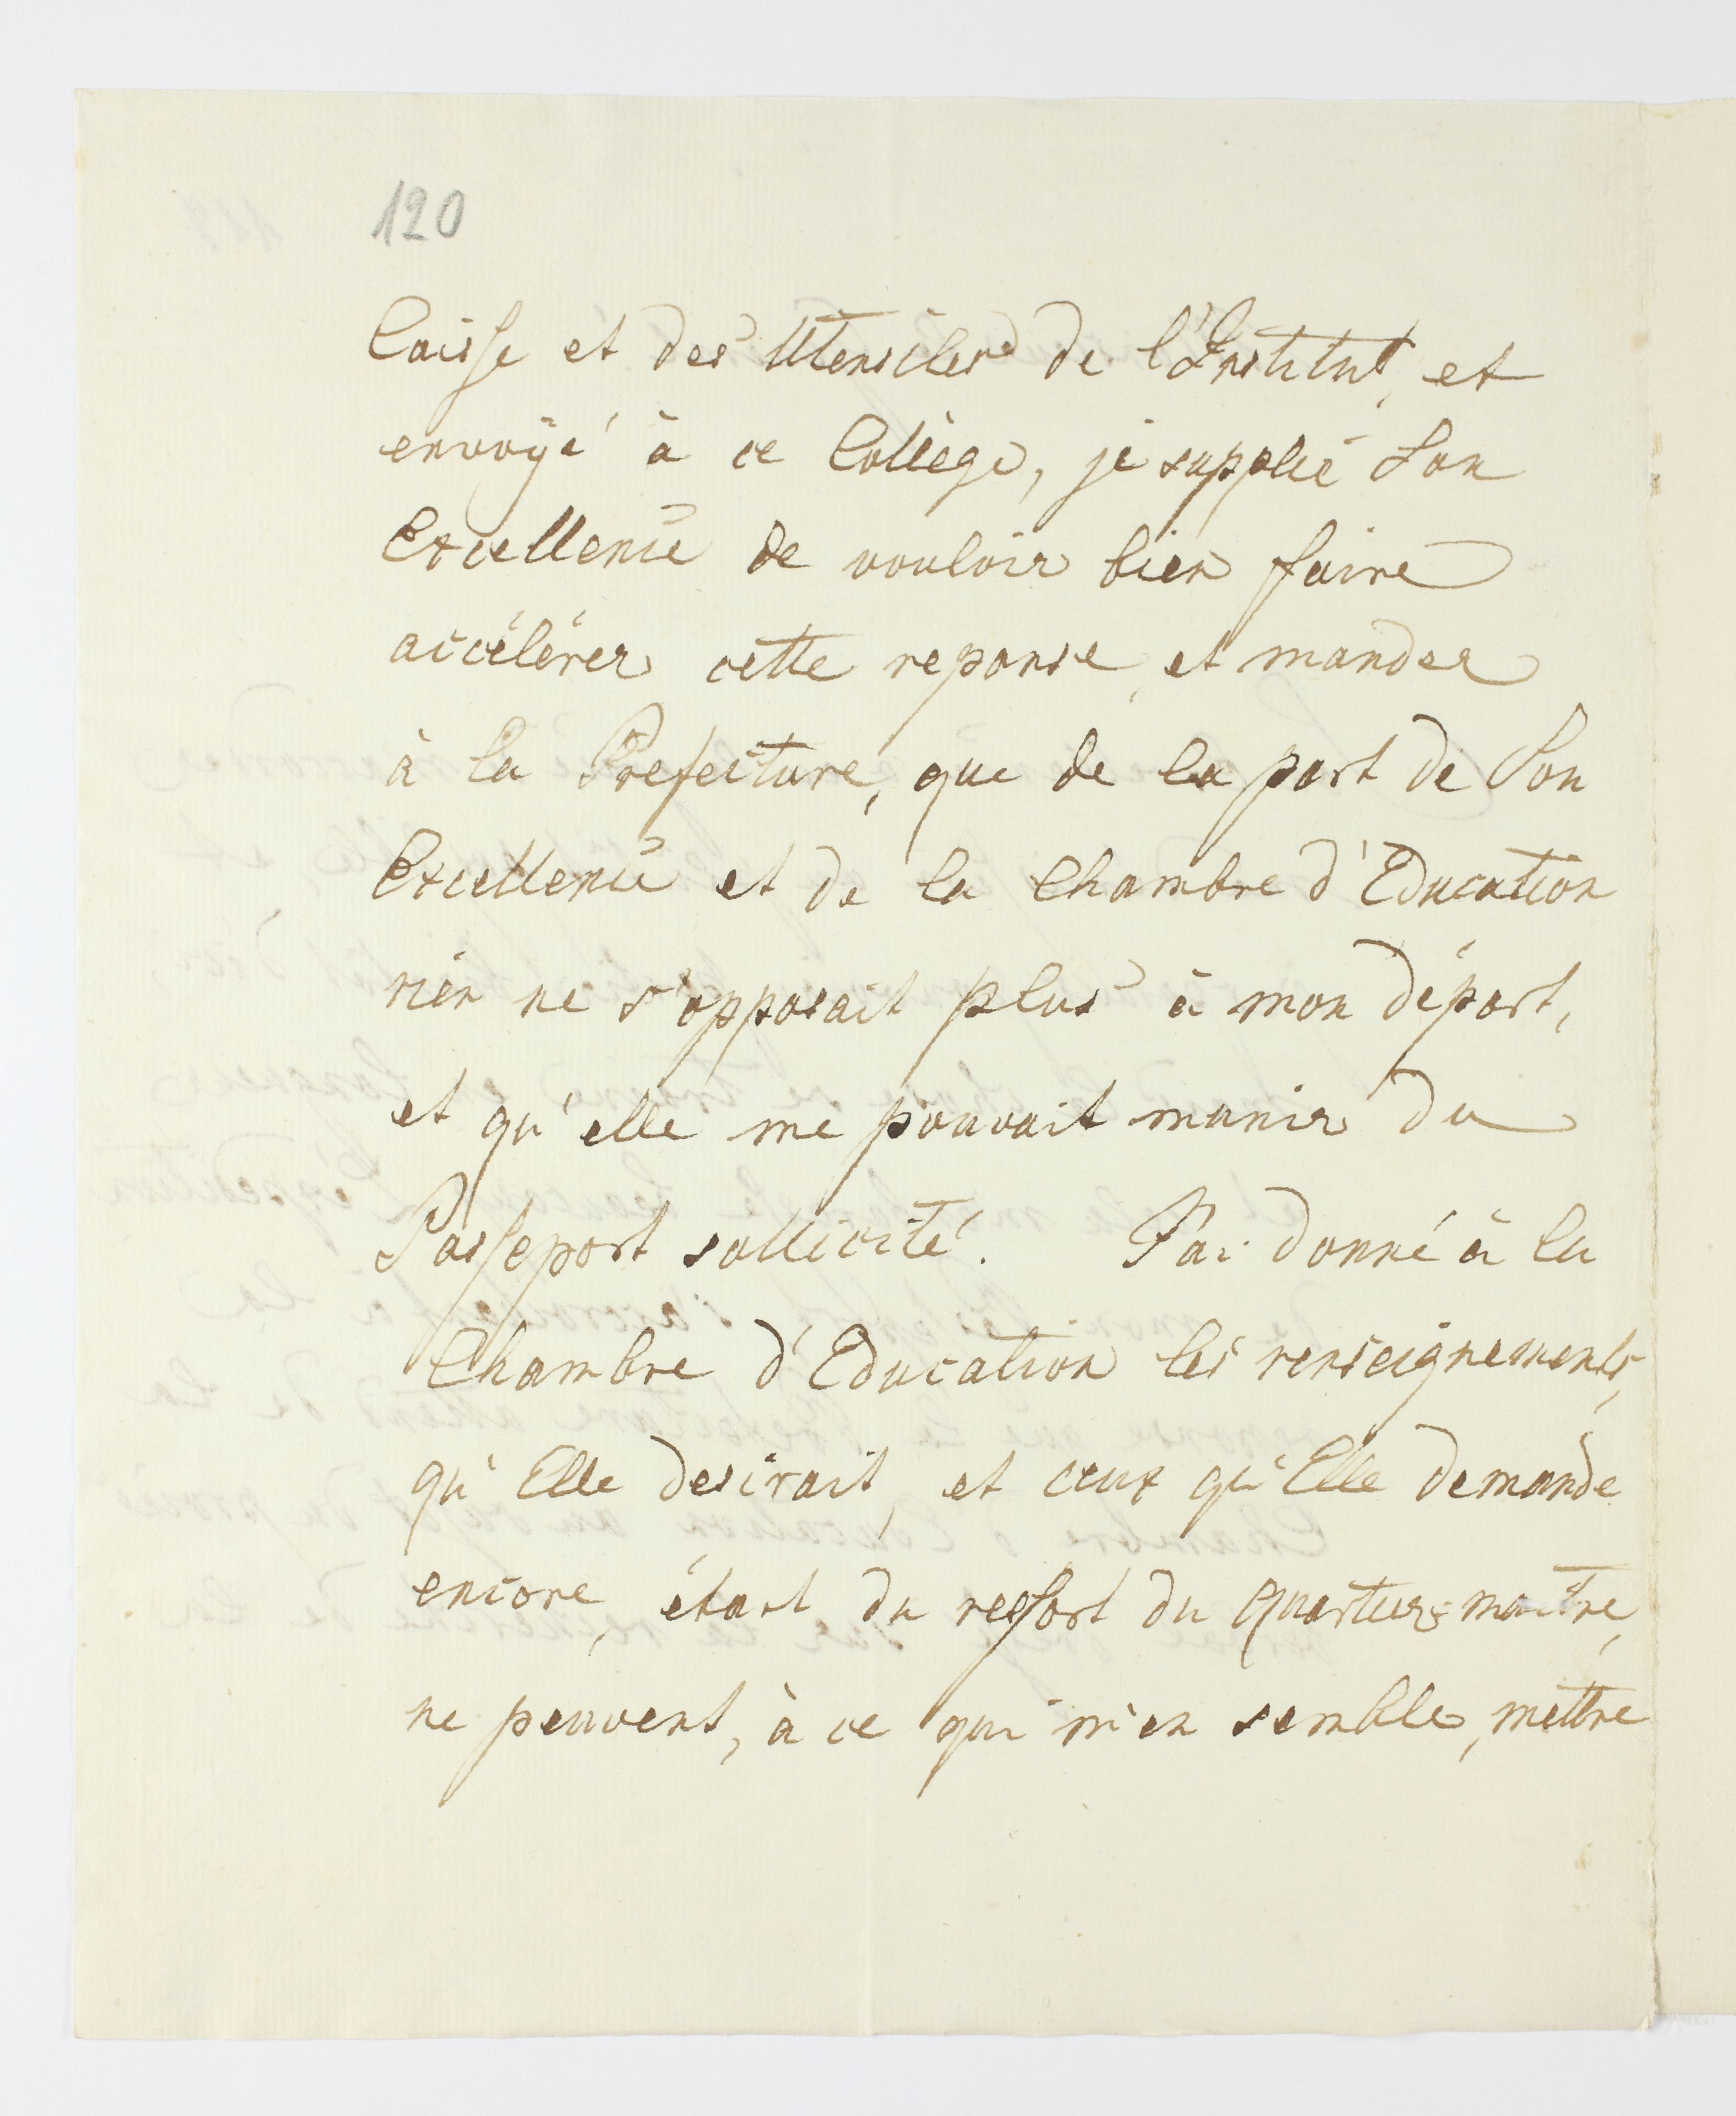 120
Caisse et des Utensiles de l'Institut, et
envoÿé à ce Collège, je supplie Son
Excellence de vouloir bien faire
accélérer cette reponse, et mander
à la Prefecture, que de la part de Son
Excellence et de la Chambre d'Education
rien ne s'opposait plus à mon départ,
et qu'elle me pouvait munir du
Passeport sollicité. J'ai donné à la
Chambre d'Education les renseignements,
qu'Elle desirait, et ceux qu'Elle demande
encore, étant du ressort du Quartier-maitre,
ne peuvent, à ce qui m'en semble, mettre